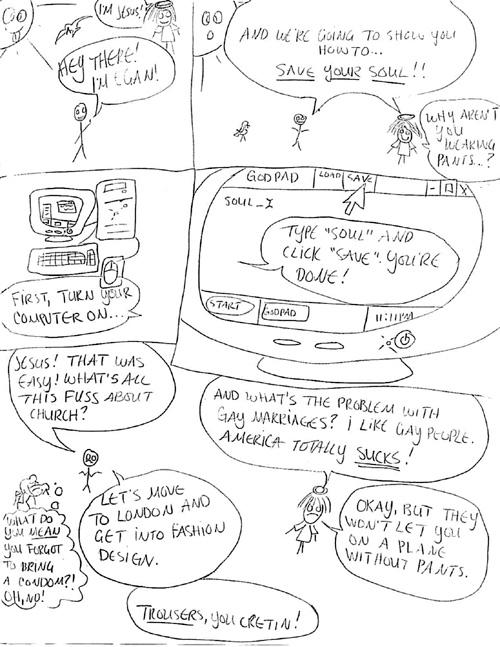 I'M JESUS!
HEY THERE!
I'M EGAN!
AND WE'RE GOING TO SHOW YOU
HOW TO...
SAVE YOUR SOUL!!
WHY AREN'T
YOU
WEARING
PANTS...?
FIRST, TURN YOUR
COMPUTER ON...
GODPAD LOAD SAVE - X
SOUL_
TYPE "SOUL" AND
CLICK "SAVE". YOU'RE
DONE!
START GODPAD 11:11PM
JESUS! THAT WAS
EASY! WHAT'S ALL
THIS FUSS ABOUT
CHURCH?
AND WHAT'S THE PROBLEM WITH
GAY MARRIAGES? I LIKE GAY PEOPLE.
AMERICA TOTALLY SUCKS!
LET'S MOVE
TO LONDON AND
GET INTO FASHION
DESIGN.
OKAY, BUT THEY
WON'T LET YOU
ON A PLANE
WITHOUT PANTS.
WHAT DO
YOU MEAN
YOU FORGOT
TO BRING
A CONDOM?!
OH, NO!
TROUSERS, YOU CRETIN!